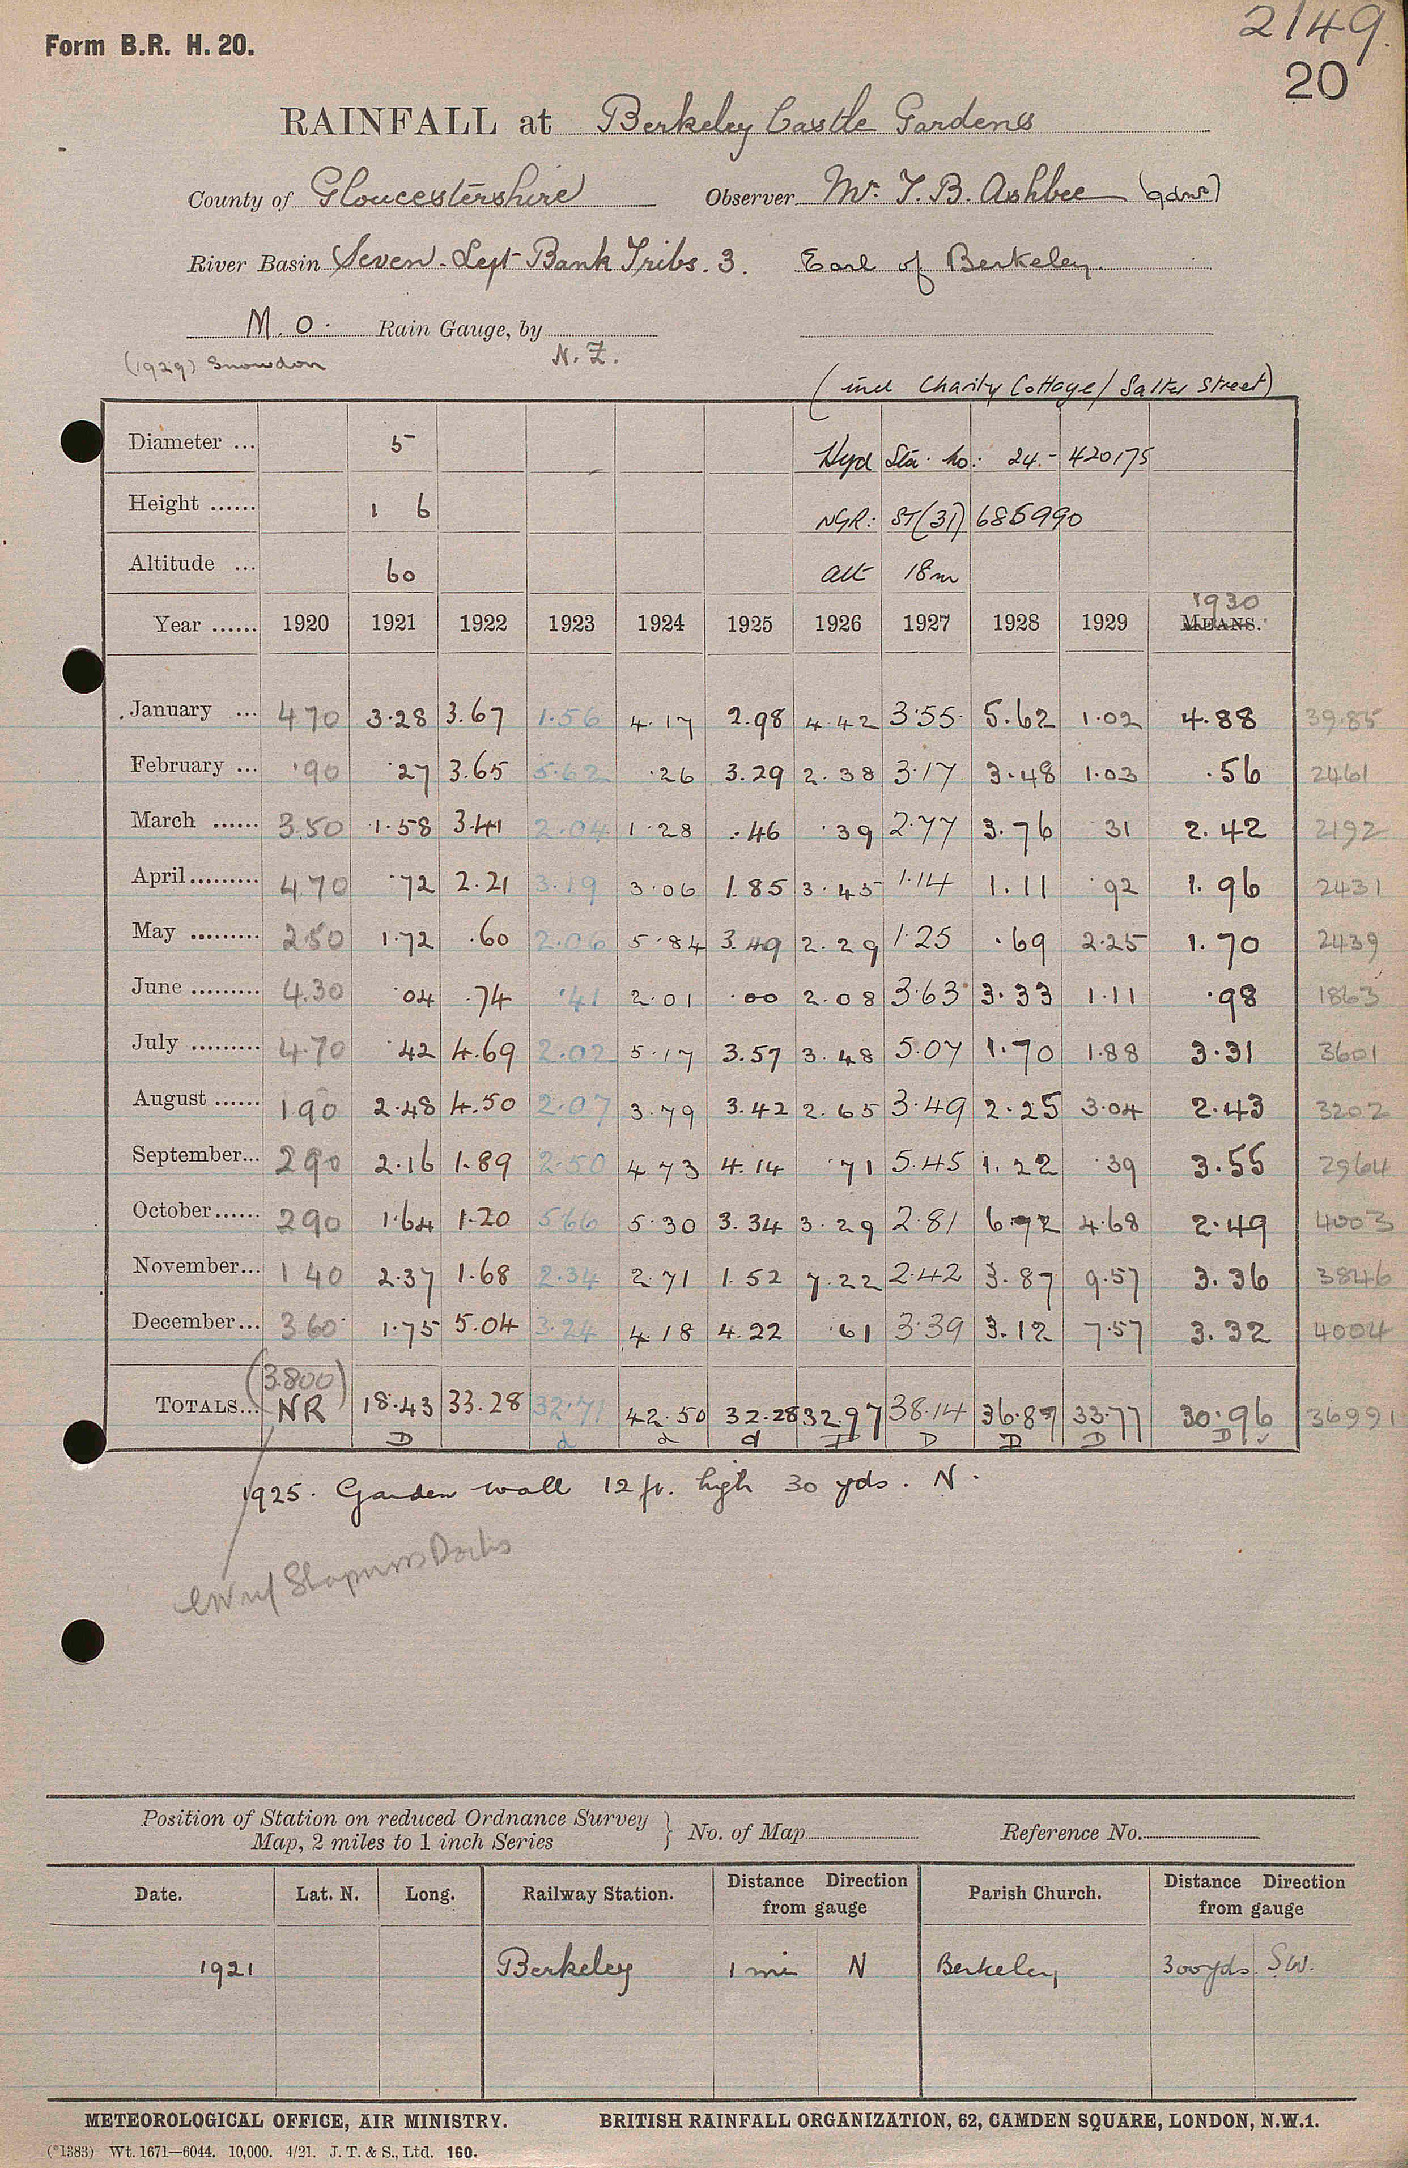 2149.
Form B.R. H. 20.
20
RAINFALL at Berkeley Castle Gardens
County of Gloucestershire Observer Mr. T. B. Ashbee (gdnr)
River Basin Seven. Left Bank Tribs. 3. Earl of Berkeley.
M. O. Rain Gauge, by
(1929) Snowdon N. Z.
(incl Charity Cottage / Salter Street)
Diameter ... 5 Hyd Sta. No: 24.- 420175
Height ...... 1 6 NGR: ST(31) 685990
Altitude ... 60 alt 18m
1930
Year ...... 1920 1921 1922 1923 1924 1925 1926 1927 1928 1929 MEANS.
January ... 470 3·28 3.67 1.56 4.17 2.98 4.42 3.55 5.62 1.02 4.88 39.85
February ... ·90 ·27 3.65 5.62 ·26 3.29 2.38 3.17 3.48 1.03 .56 2461
March ...... 3.50 1.58 3.41 2.04 1.28 .46 ·39 2.77 3.76 31 2.42 2192
April......... 4.70 ·72 2.21 3.19 3.06 1.85 3.45 1.14 1.11 ·92 1.96 2431
May ......... 250 1.72 .60 2.06 5.84 3.49 2.29 1.25 .69 2.25 1.70 2439
June ......... 4.30 ·04 .74 ·41 2.01 .00 2.08 3.63 3.33 1.11 .98 1863
July ......... 4.70 ·42 4.69 2.02 5.17 3.57 3.48 5.07 1.70 1.88 3.31 3601
August ...... 190 2.48 4.50 2.07 3.79 3.42 2.65 3.49 2.25 3.04 2.43 3202
September... 290 2.16 1.89 2.50 4.73 4.14 ·71 5.45 1.22 ·39 3.55 2964
October...... 290 1.64 1.20 5.66 5.30 3.34 3.29 2.81 6.72 4.68 2.49 4003
November... 140 2.37 1.68 2.34 2.71 1.52 7.22 2.42 3.87 9.57 3.36 3846
December... 360 1.75 5.04 3.24 4.18 4.22 ·61 3.39 3.12 7.57 3.32 4004
(3.800)
TOTALS... NR 18.43 33.28 32.71 42.50 32.28 32.97 38.14 36.87 33.77 30.96 36991
D d d d D D D D
1925. Garden wall 12 ft. high 30 yds. N.
Position of Station on reduced Ordnance Survey
Map, 2 miles to 1 inch Series } No. of Map Reference No.
Date. Lat. N. Long. Railway Station. Distance Direction from gauge Parish Church. Distance Direction from gauge
1921 Berkeley 1 mi N Berkeley 300yds. SW.
METEOROLOGICAL OFFICE, AIR MINISTRY. BRITISH RAINFALL ORGANIZATION, 62, CAMDEN SQUARE, LONDON, N.W.1.
(*1383) Wt. 1671—6044. 10,000. 4/21. J. T. & S., Ltd. 160.